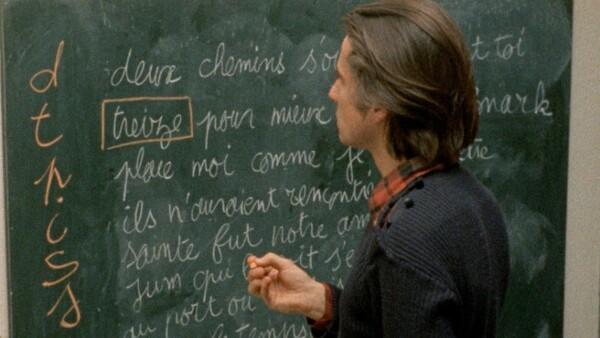 d
t
r
i
s
s
deux chemins s'o t toi
treize pour mieux mark
place moi comme je
ils n'auraient rencontré
sainte fut notre am
jum qui it s'e
au port ou
le temps